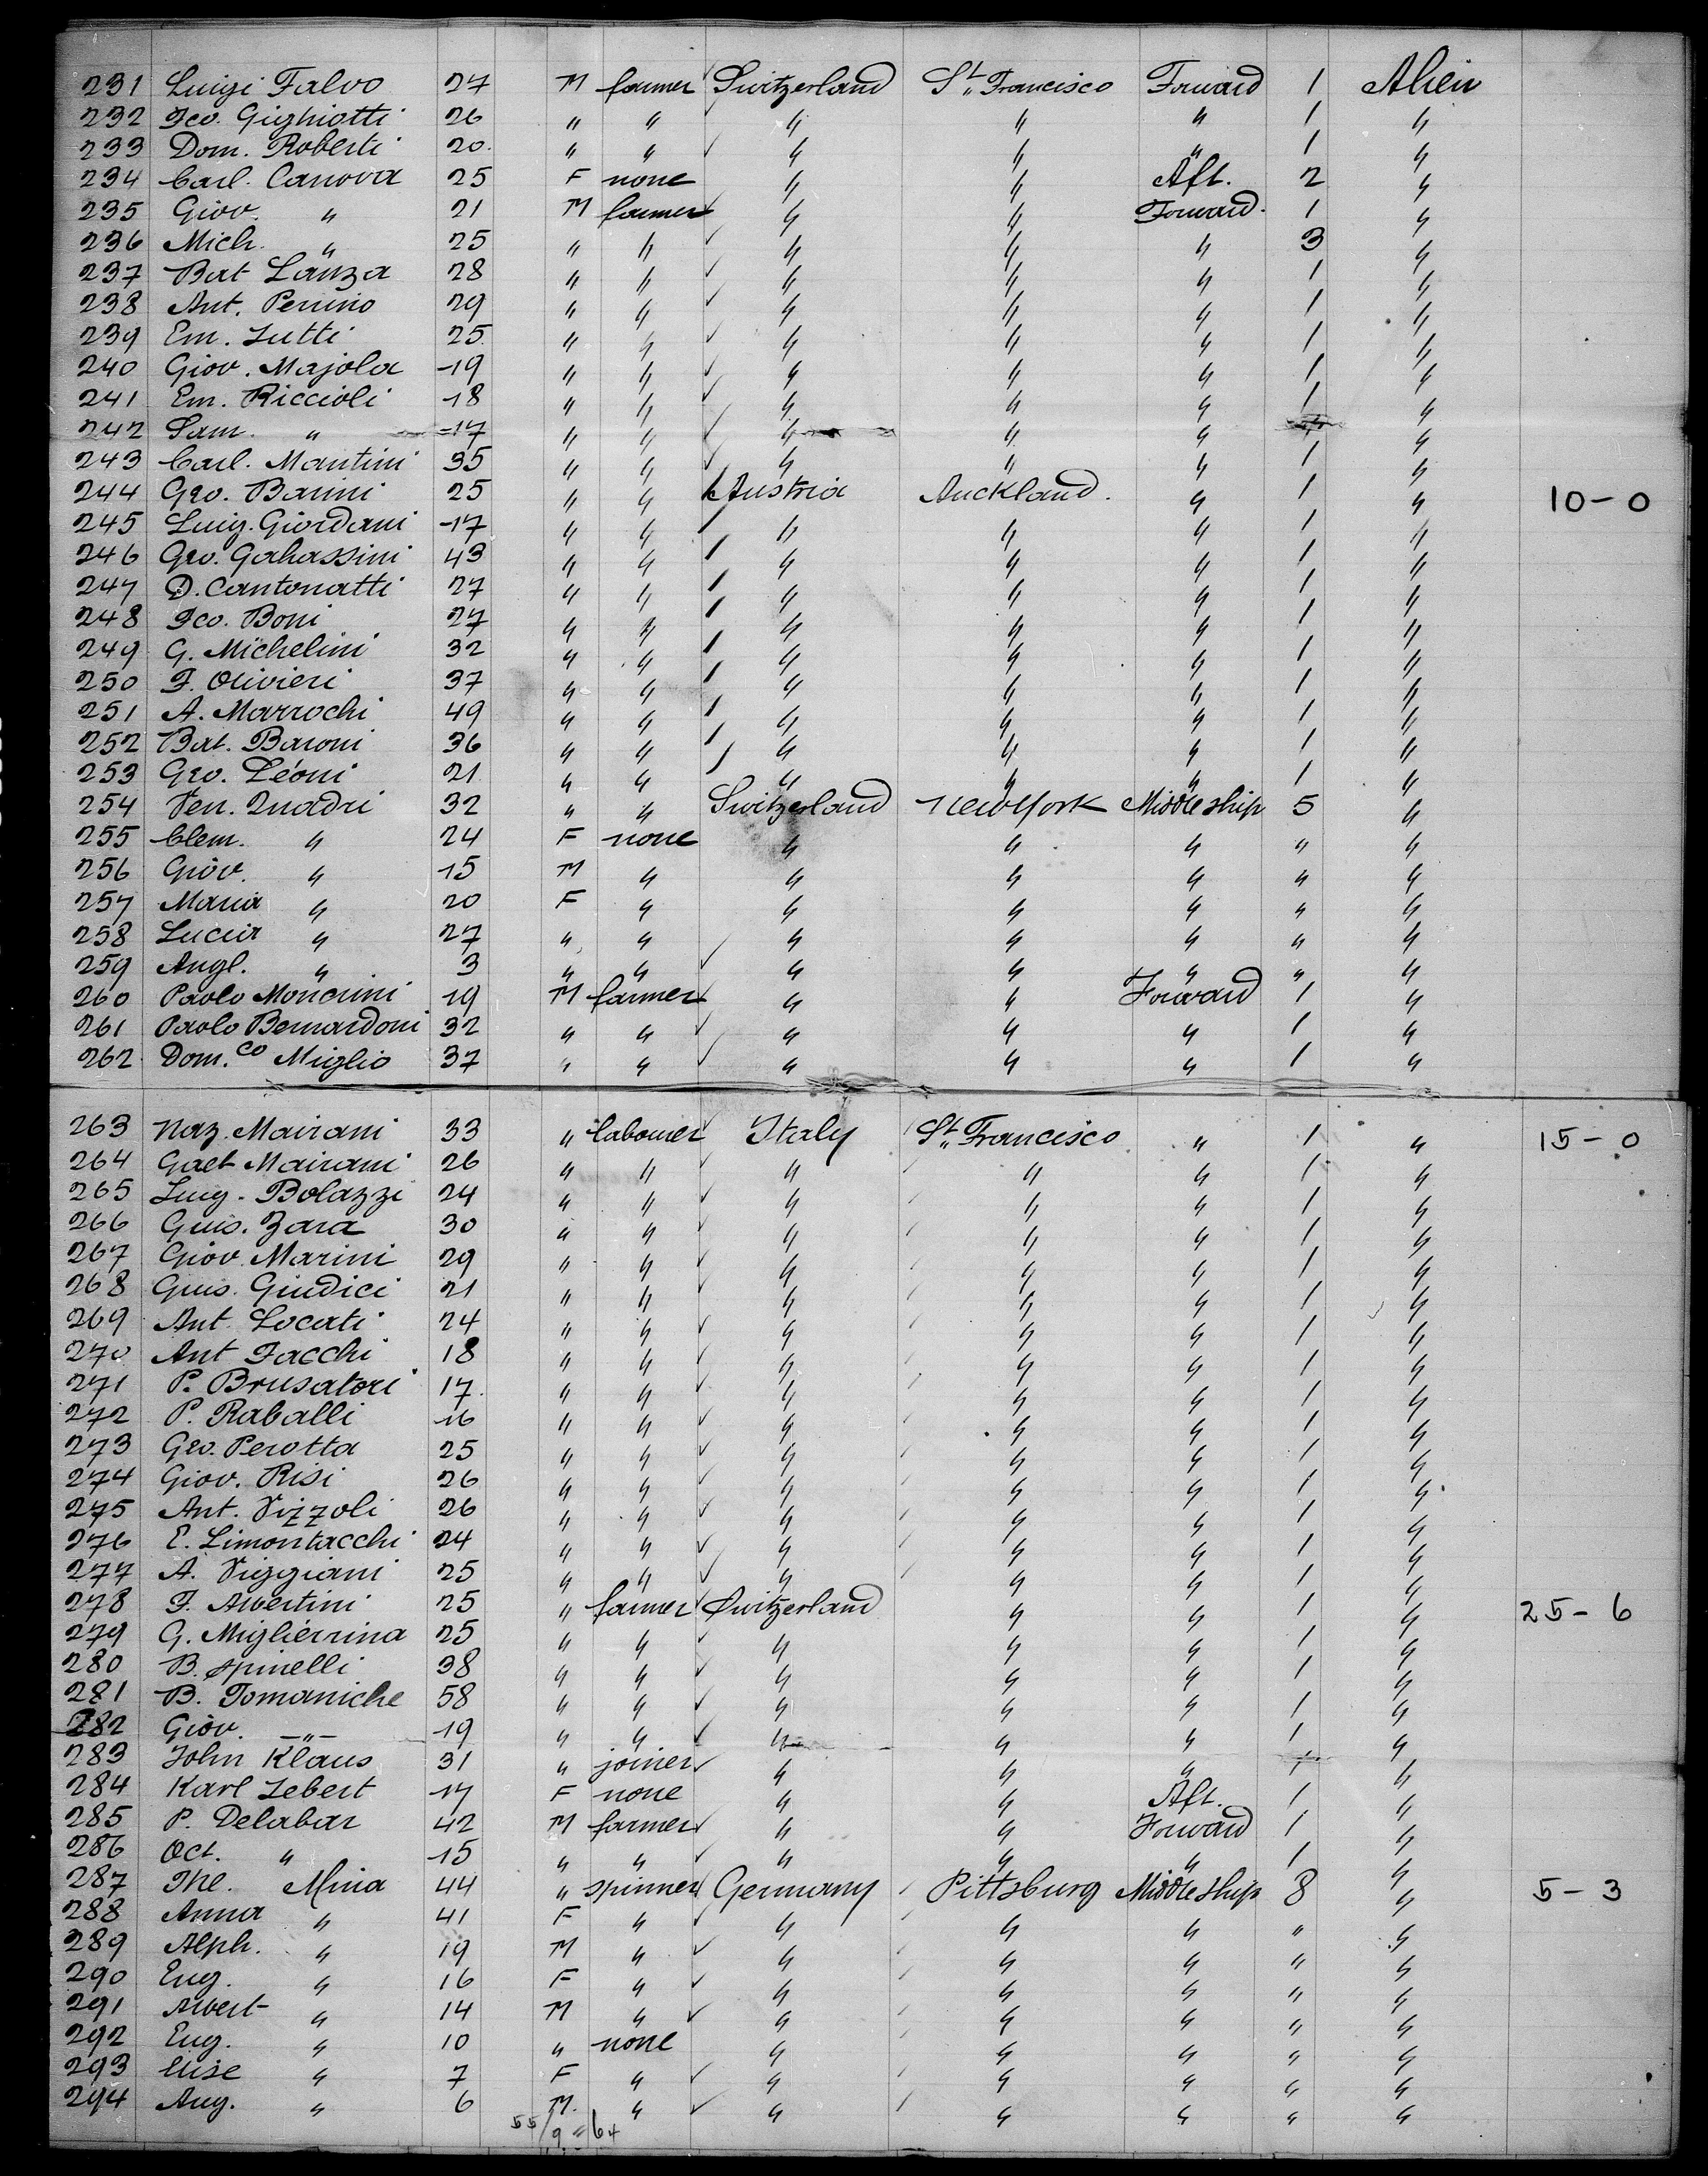 231 Luigi Falvo 27 M farmer Switzerland St. Francisco Forward 1 Alien
232 Gco. Gighiotti 26 " " " " " 1 "
233 Dom. Roberti 20. " " " " " 1 "
234 Carl. Canova 25 F none " " Aft. 2 "
235 Giov. " 21 M farmer " " Forward. 1 "
236 Mich. " 25 " " " " " 3 "
237 Bat Lanza 28 " " " " " 1 "
238 Ant. Perrino 29 " " " " " 1 "
239 Em. Lutti 25 " " " " " 1 "
240 Giov. Majola 19 " " " " " 1 "
241 Em. Riccioli 18 " " " " " 1 "
242 Sam. " 17 " " " " "
243 Carl. Mantini 35 " " " " " 1 "
244 Geo. Barini 25 " " Austria Auckland. " 1 " 10-0
245 Luig. Giordani 17 " " " " " 1 "
246 Geo. Gahassini 43 " " " " " 1 "
247 D. Cantonatti 27 " " " " " 1 "
248 Gco. Boni 27 " " " " " 1 "
249 G. Michelini 32 " " " " " 1 "
250 F. Olivieri 37 " " " " " 1 "
251 A. Marrochi 49 " " " " " 1 "
252 Bat. Baroni 36 " " " " " 1 "
253 Geo. Léoni 21 " " " " " 1 "
254 Ven. Quadri 32 " " Switzerland New York Middle ship 5 "
255 Clem. " 24 F none " " " " "
256 Giov. " 15 M " " " " " "
257 Maria " 20 F " " " " " "
258 Lucia " 27 " " " " " " "
259 Angl. " 3 " " " " " " "
260 Paolo Moncrini 19 M farmer " " Forward 1 "
261 Paolo Bernardoni 32 " " " " " 1 "
262 Dom.co Miglio 37 " " " " " 1 "
263 Naz. Mairani 33 " labourer Italy St. Francisco " 1 " 15-0
264 Gaet Mairani 26 " " " " " 1 "
265 Luig. Bolazzi 24 " " " " " 1 "
266 Guis. Zara 30 " " " " " 1 "
267 Giov. Marini 29 " " " " " 1 "
268 Guis. Giudici 21 " " " " " 1 "
269 Ant. Locati 24 " " " " " 1 "
270 Ant Facchi 18 " " " " " 1 "
271 P. Brusatori 17. " " " " " 1 "
272 P. Raballi 16 " " " " " 1 "
273 Geo. Perotta 25 " " " " " 1 "
274 Giov. Risi 26 " " " " " 1 "
275 Ant. Vizzoli 26 " " " " " 1 "
276 E. Limontacchi 24 " " " " " 1 "
277 A. Viggiani 25 " " " " " 1 "
278 F. Albertini 25 " farmer Switzerland " " 1 " 25-6
279 G. Miglierrina 25 " " " " " 1 "
280 B. Spinelli 38 " " " " " 1 "
281 B. Tomaniche 58 " " " " " 1 "
282 Giov. -"- 19 " " " " " 1 "
283 John Klaus 31 " joiner " " " 1 "
284 Karl Lebert 17 F none " " Aft. 1 "
285 P. Delabar 42 M farmer " " Forward 1 "
286 Oct. " 15 " " " " " 1 "
287 The. Mina 44 " spinner Germany Pittsburg Middle ship 8 " 5-3
288 Anna " 41 F " " " " " "
289 Alph. " 19 M " " " " " "
290 Eug. " 16 F " " " " " "
291 Albert " 14 M " " " " " "
292 Eug. " 10 " none " " " " "
293 Elise " 7 F " " " " " "
294 Aug. " 6 M. " " " " " "
55/9 = 64